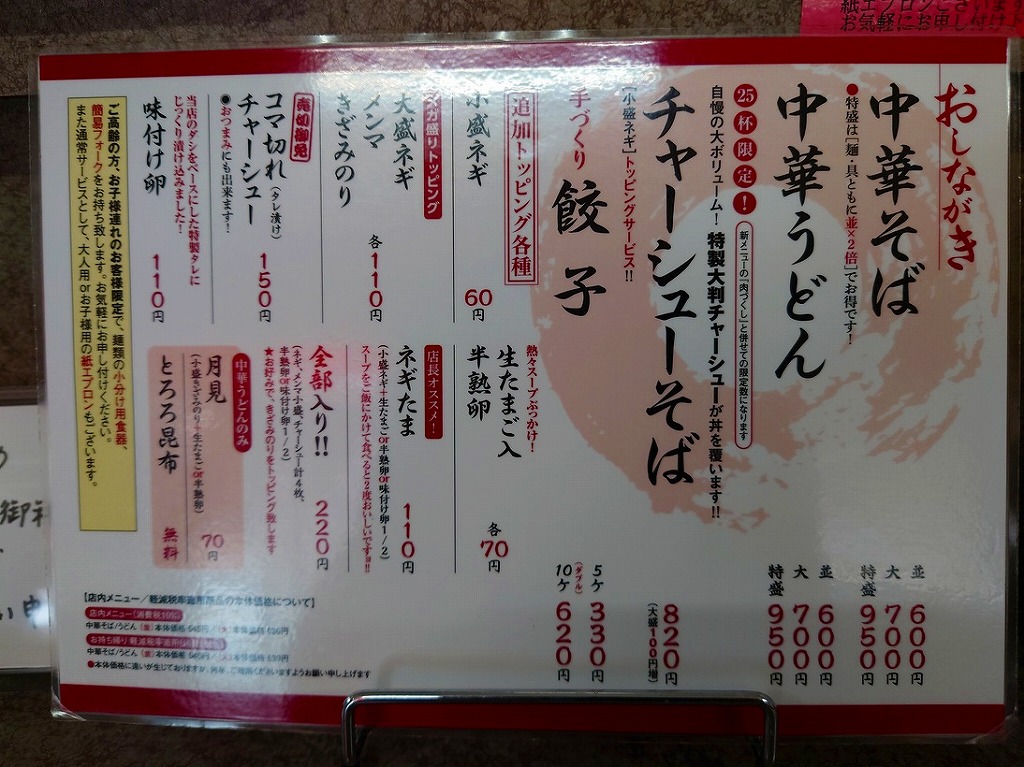 おしながき
中華そば
●特盛は「麺・具ともに並×2倍」でお得です!
並 600円
大 700円
特盛 950円
中華うどん
並 600円
大 700円
特盛 950円
25杯限定!
新メニューの「肉づくし」と併せての限定数になります
自慢の大ボリューム! 特製大判チャーシューが丼を覆います!!
チャーシューそば
820円
(大盛100円増)
[小盛ネギ]トッピングサービス!!
手づくり 餃子
5ケ 330円
(ダブル)
10ケ 620円
追加トッピング各種
小盛ネギ 60円
メガ盛りトッピング
大盛ネギ
メンマ
きざみのり
各110円
売切御免
コマ切れ(タレ漬け)
チャーシュー 150円
●おつまみにも出来ます!
味付け卵 110円
当店のダシをベースにした特製タレに
じっくり漬け込みました!
熱々スープぶっかけ!
生たまご入
半熟卵
各70円
店長オススメ!
ネギたま 110円
(小盛ネギ+生たまごor半熟卵or味付け卵1/2)
スープをご飯にかけて食べると2度おいしいですョ!!
全部入り!! 220円
(ネギ、メンマ小盛、チャーシュー計4枚、
半熟卵or味付け卵1/2)
★お好みで、きざみのりをトッピング致します
中華うどんのみ
月見 70円
(小盛きざみのり+生たまごor半熟卵)
とろろ昆布 無料
ご高齢の方、お子様連れのお客様限定で、麺類の小分け用食器、
簡易フォークをお持ち致します。お気軽にお申し付けください。
また通常サービスとして、大人用orお子様用の紙エプロンもございます。
【店内メニュー/軽減税率適用商品の本体価格について】
店内メニュー(消費税10%)
中華そば/うどん
お持ち帰り
中華そば/うどん
●本体価格に違いが生じておりますが、何卒、ご理解くださいますようお願い申し上げます
紙エプロンございま
お気軽にお申し付け